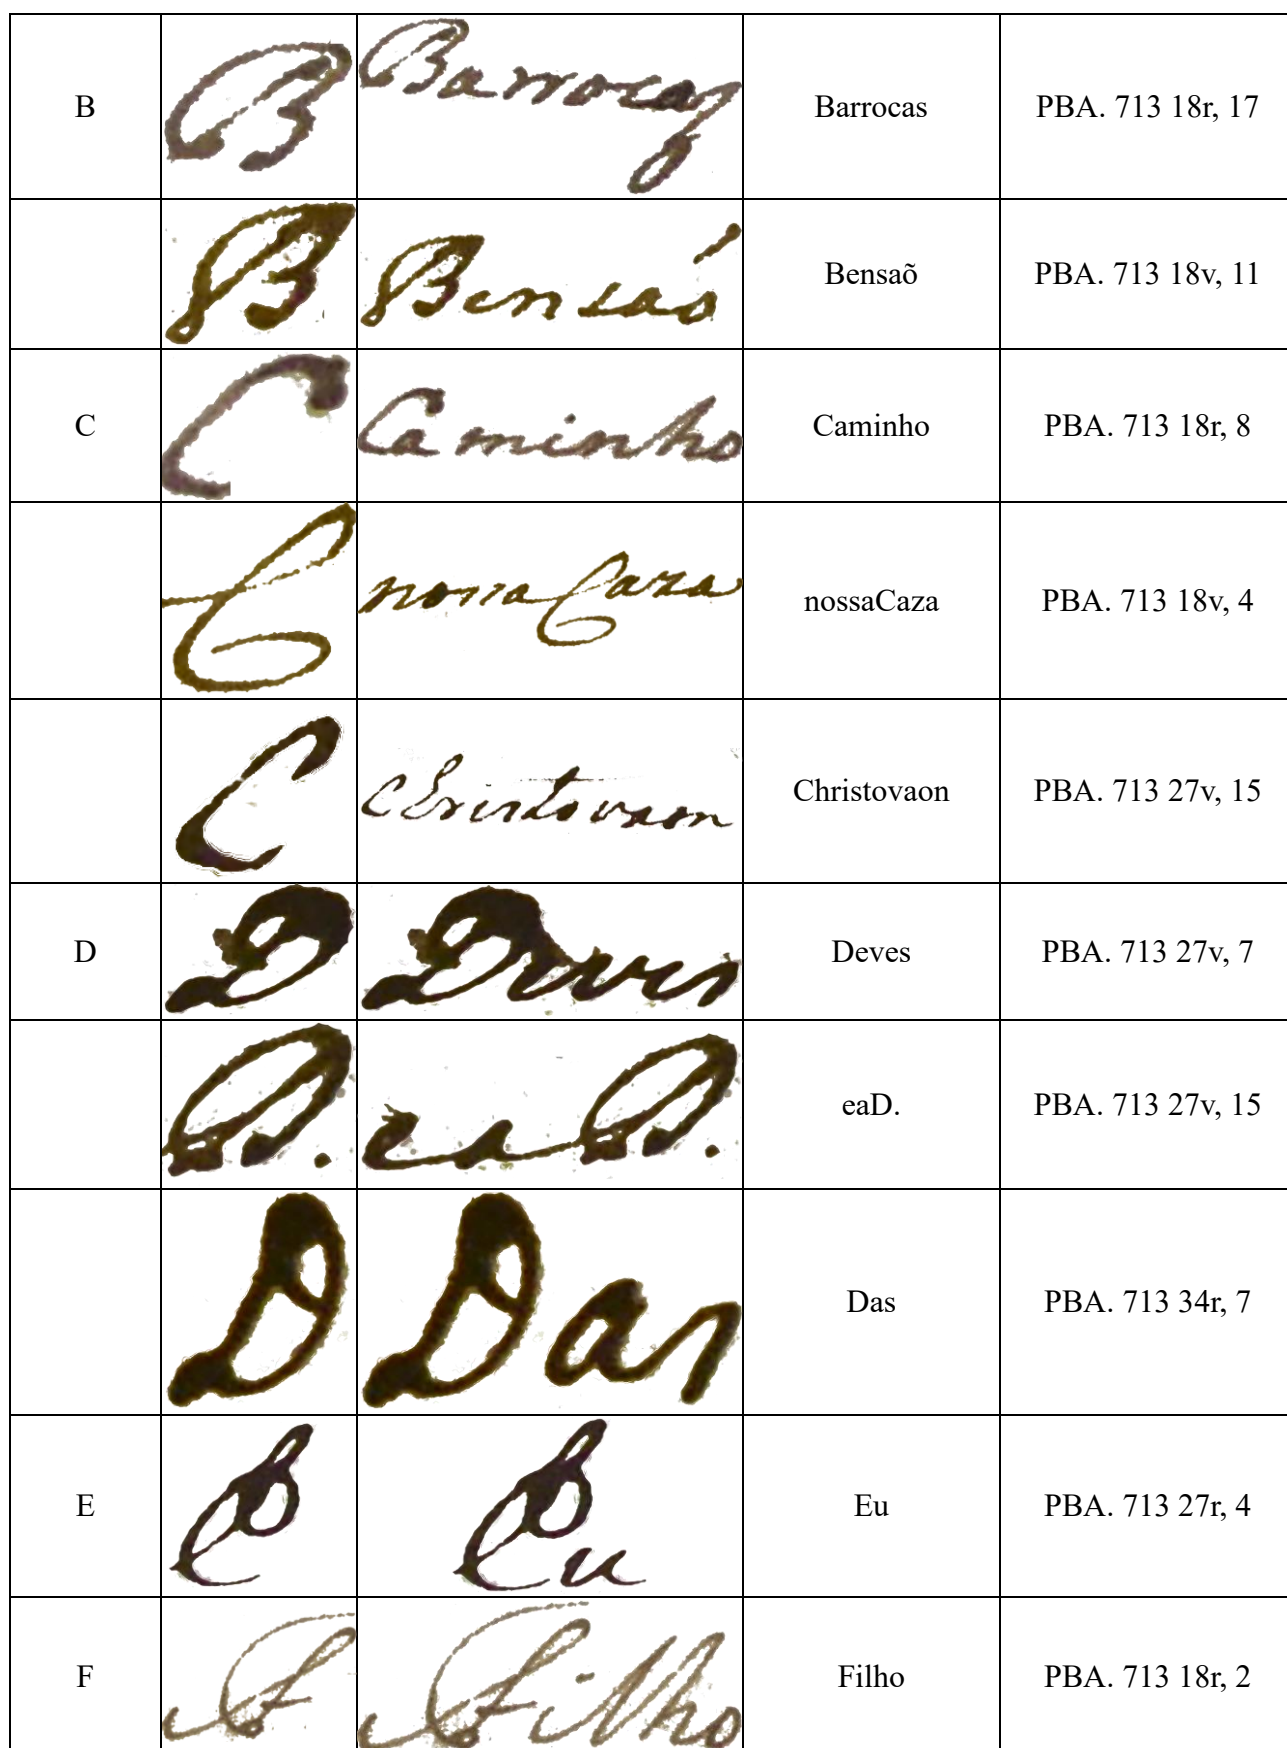 B B Barrocas Barrocas PBA. 713 18r, 17
B Bensaó Bensaõ PBA. 713 18v, 11
C C Caminho Caminho PBA. 713 18r, 8
C nossaCaza nossaCaza PBA. 713 18v, 4
C Christovaon Christovaon PBA. 713 27v, 15
D D Deves Deves PBA. 713 27v, 7
D. eaD. eaD. PBA. 713 27v, 15
D Das Das PBA. 713 34r, 7
E E Eu Eu PBA. 713 27r, 4
F F Filho Filho PBA. 713 18r, 2